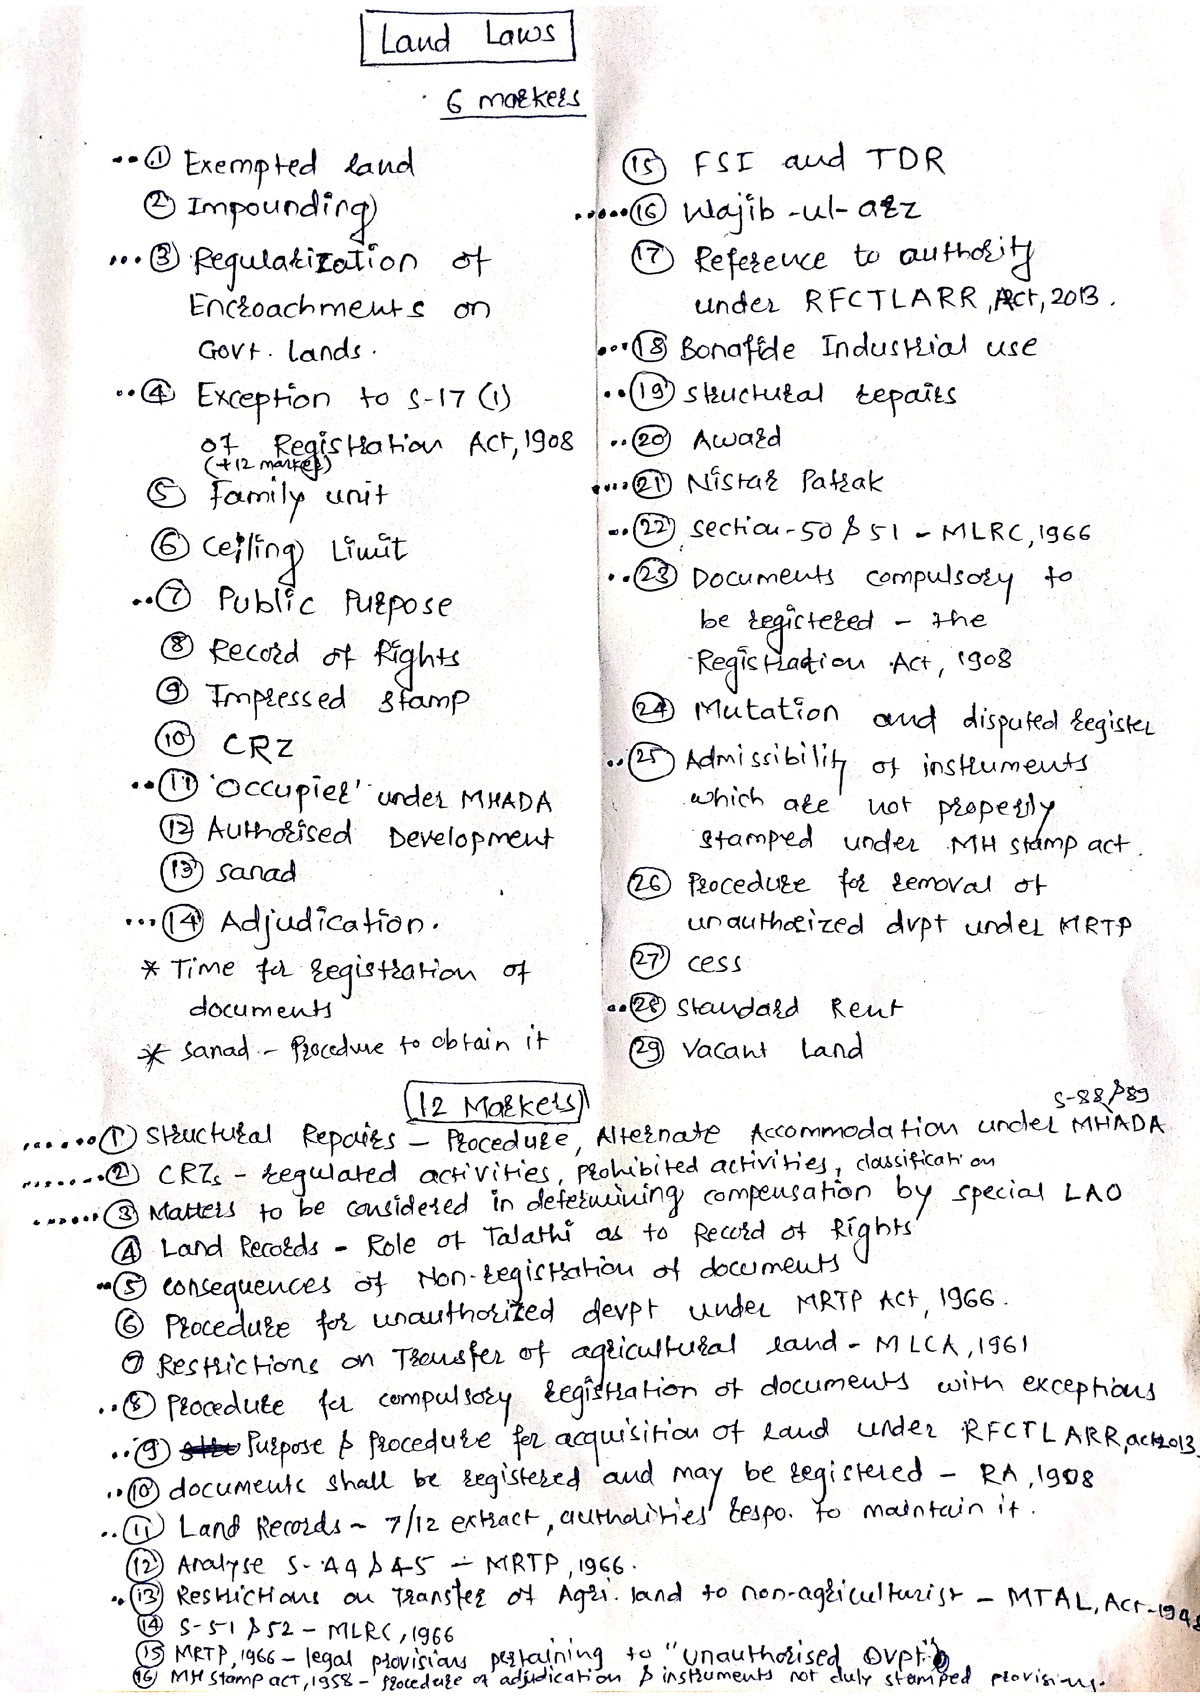 Land Laws
6 markers
① Exempted land
② Impounding
③ Regularization of
Encroachments on
Govt. lands.
④ Exception to S-17 (1)
of Registration Act, 1908
(+12 marker)
⑤ Family unit
⑥ Ceiling Limit
⑦ Public Purpose
⑧ Record of Rights
⑨ Impressed stamp
⑩ CRZ
⑪ 'Occupier' under MHADA
⑫ Authorised Development
⑬ sanad
⑭ Adjudication.
* Time for registration of
documents
* sanad - Procedure to obtain it
⑮ FSI and TDR
⑯ Wajib-ul-arz
⑰ Reference to authority
under RFCTLARR, Act, 2013.
⑱ Bonafide Industrial use
⑲ structural repairs
⑳ Award
㉑ Nistar Patrak
㉒ section-50 & 51 - MLRC, 1966
㉓ Documents compulsory to
be registered - the
Registration Act, 1908
㉔ Mutation and disputed register
㉕ Admissibility of instruments
which are not properly
stamped under MH stamp act.
㉖ Procedure for removal of
unauthorized dvpt under MRTP
㉗ cess
㉘ Standard Rent
㉙ Vacant Land
12 Markers
S-88 & 89
① Structural Repairs - Procedure, Alternate Accommodation under MHADA
② CRZs - regulated activities, prohibited activities, classification
③ Matters to be considered in determining compensation by special LAO
④ Land Records - Role of Talathi as to Record of Rights
⑤ consequences of Non-registration of documents
⑥ Procedure for unauthorized devpt under MRTP Act, 1966.
⑦ Restrictions on Transfer of agricultural land - MLCA, 1961
⑧ Procedure for compulsory registration of documents with exceptions
⑨ Purpose & Procedure for acquisition of land under RFCTLARR, act 2013
⑩ documents shall be registered and may be registered - RA, 1908
⑪ Land Records - 7/12 extract, authorities respo. to maintain it.
⑫ Analyse S-44 & 45 - MRTP, 1966.
⑬ Restrictions on Transfer of Agri. land to non-agriculturist - MTAL, Act-1948
⑭ S-51 & 52 - MLRC, 1966
⑮ MRTP, 1966 - legal provisions pertaining to "unauthorised Dvpt"
⑯ MH stamp act, 1958 - procedure of adjudication & instruments not duly stamped provisions.